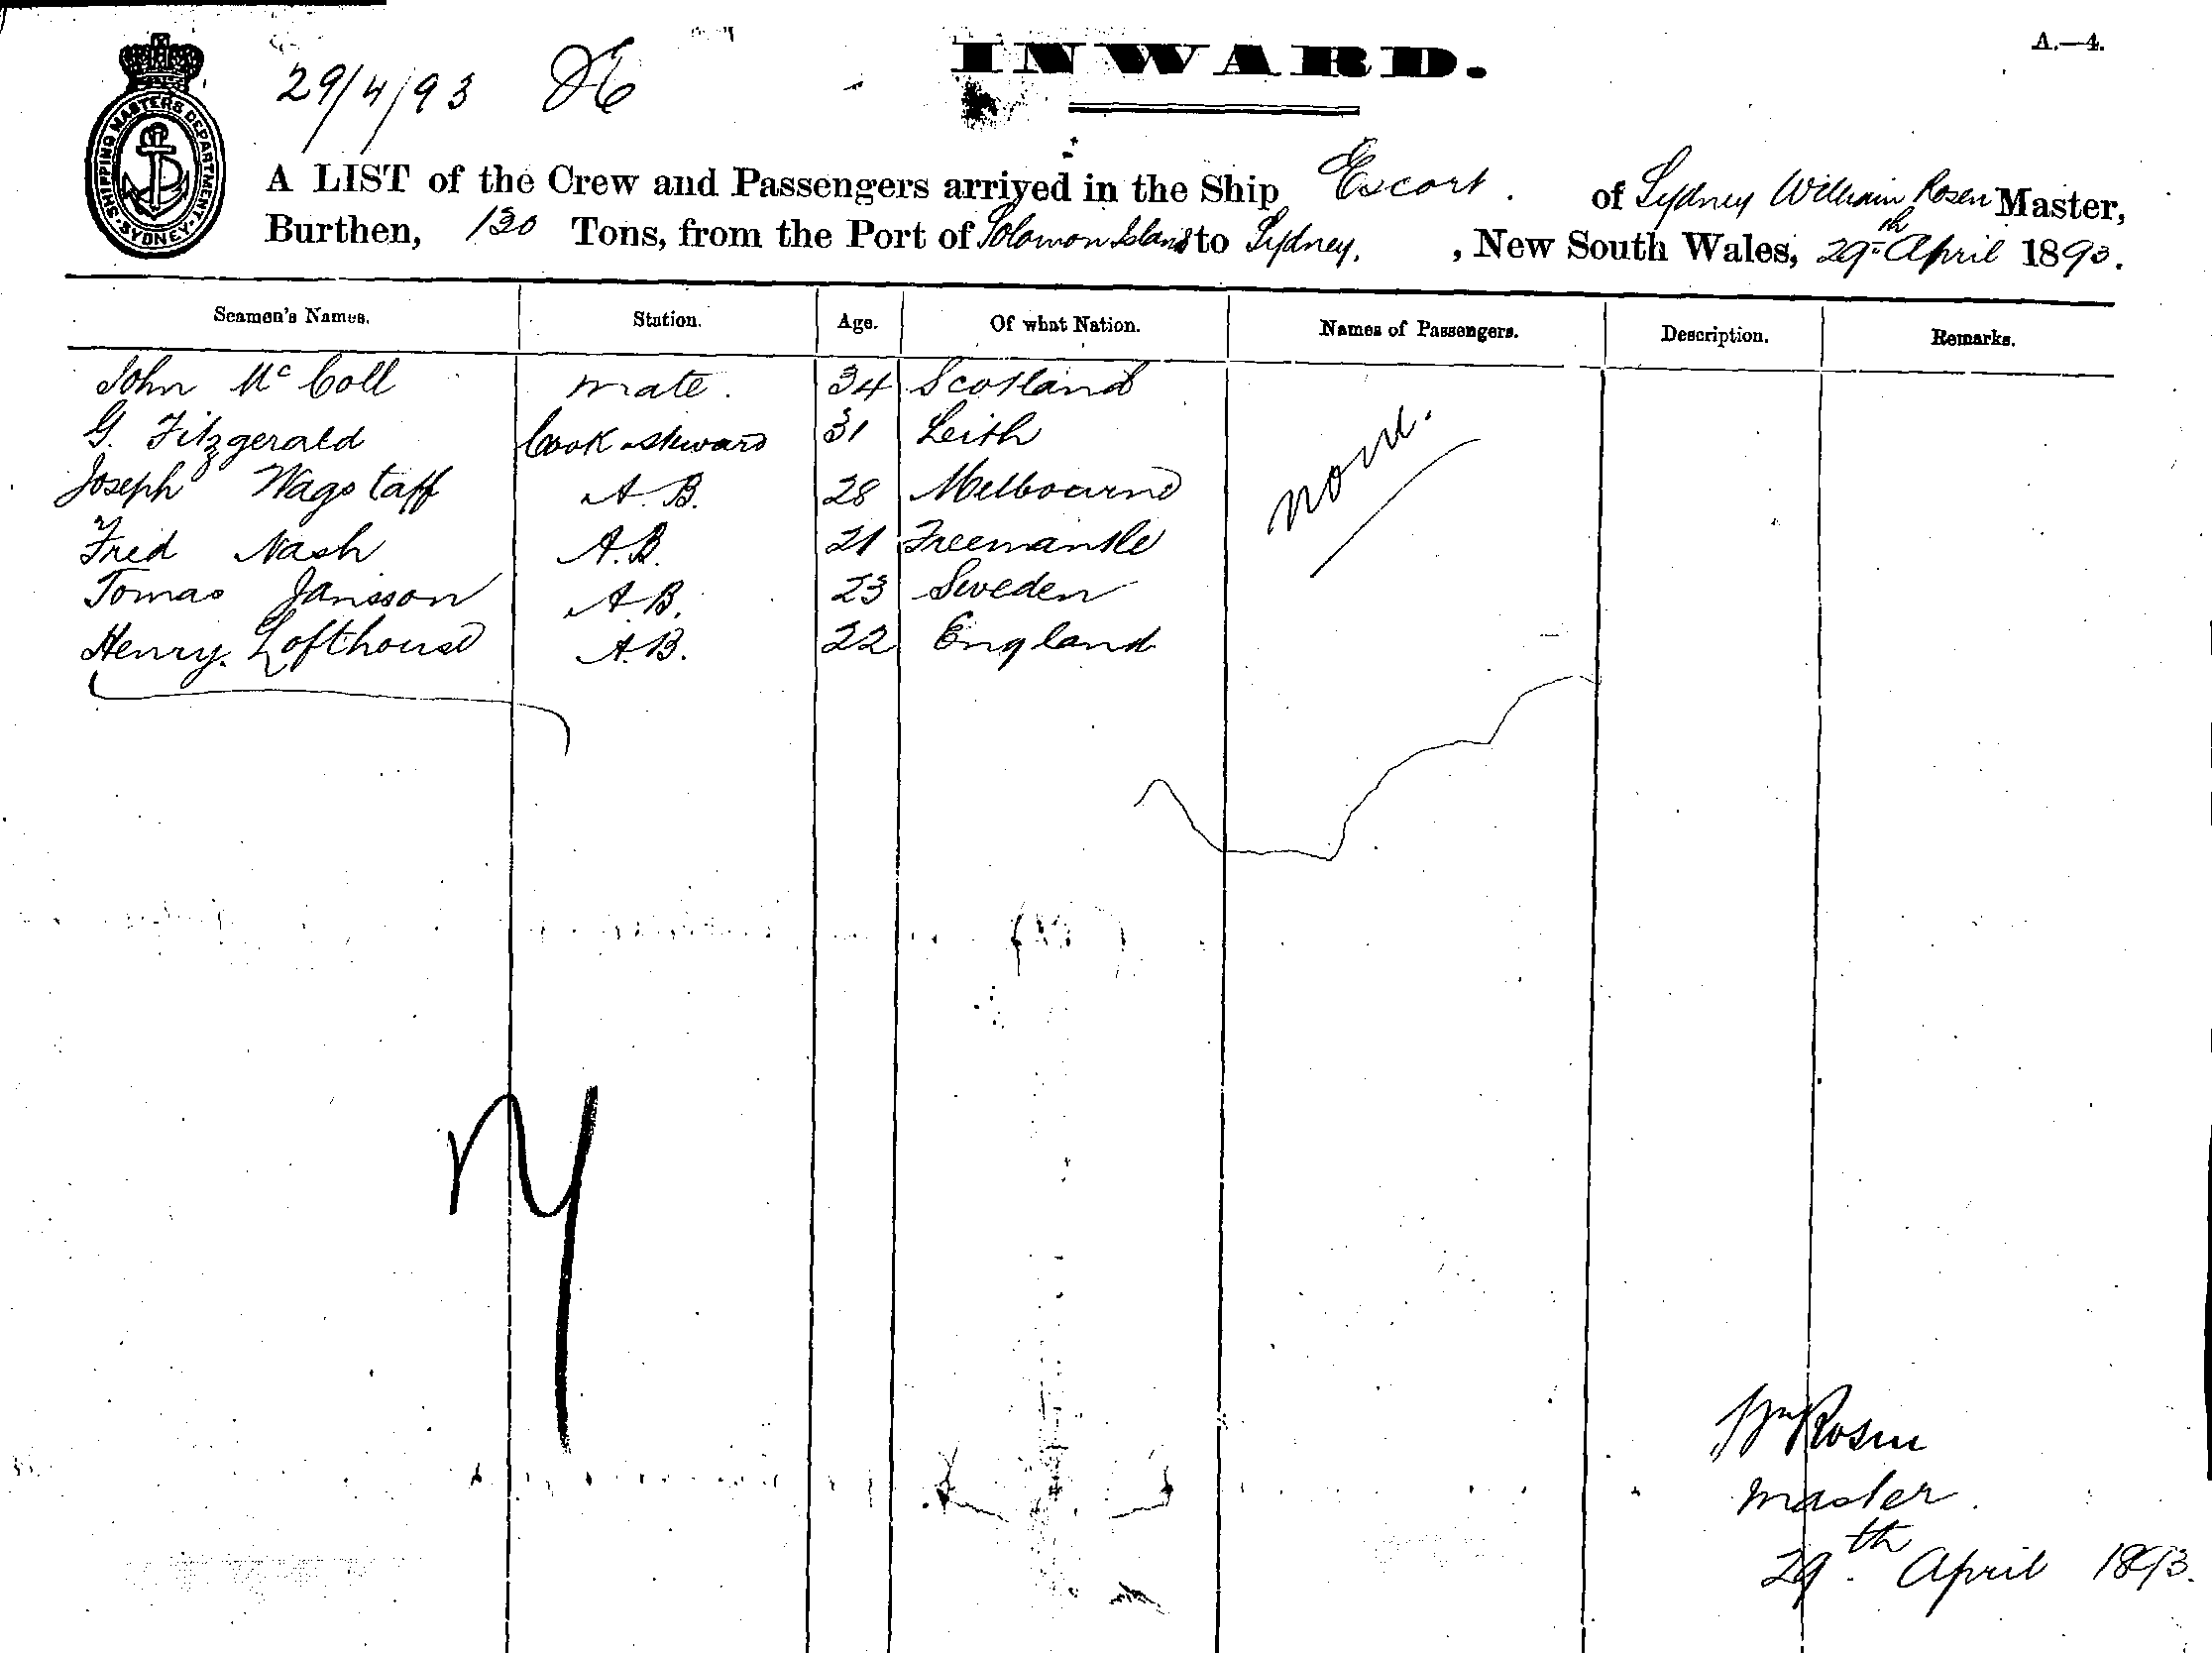 29/4/93
INWARD.
A.—4.
SHIPPING MASTERS DEPARTMENT · SYDNEY ·
A LIST of the Crew and Passengers arrived in the Ship Escort. of Sydney William Rosen Master,
Burthen, 130 Tons, from the Port of Solomon Islands to Sydney. , New South Wales, 29th April 1893.
Seamen's Names. Station. Age. Of what Nation. Names of Passengers. Description. Remarks.
John McColl mate. 34 Scotland
G. Fitzgerald Cook & steward 31 Leith
Joseph Wagstaff A.B. 28 Melbourne
none.
Fred Nash A.B. 21 Freemantle
Tomas Jansson A.B. 23 Sweden
Henry Lofthouse A.B. 22 England
Wm Rosen
master.
29th April 1893.